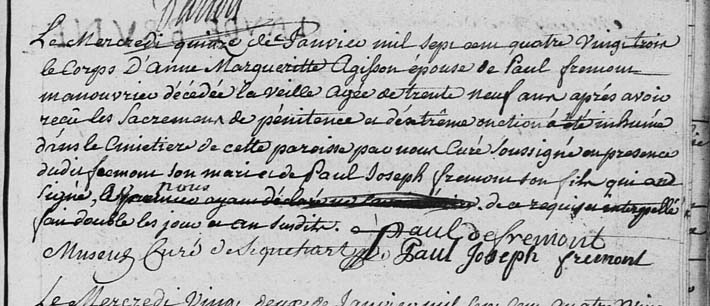 Le Mercredi quinze de Janvier mil sept cent quatre Vingt trois
le Corps D'Anne Margueritte Agisson épouse de Paul fremont
manouvrier décédée la veille agée de trente neuf ans aprés avoir
recû les Sacremens de pénitence et d'extrême onction a été inhumé
dans le Cimetiere de cette paroisse par nous Curé soussigné en presence
dudit fremont son mari et de Paul Joseph fremont son fils qui ont
signé, nous de ce requis et interpellé
fait double les jour et an susdits.
Paul defremont
Curé de Sequehart Paul Joseph fremont
Le Mercredi Vingt deux de Janvier mil sept cent quatre Vingt